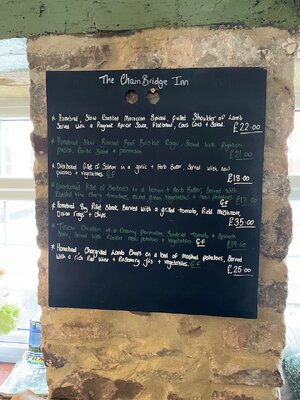 The Chain Bridge Inn
* Homebred, Slow Roasted Moroccan Spiced pulled Shoulder of Lamb
Served with a Fragrant Apricot Sauce, Flatbread, Cous Cous + Salad.
£22.00
* Homebred Slow Braised Beef Brisket Ragu, Served with Rigatoni
pasta, Garlic Bread + parmesan
£21.00
* Ovenbaked Fillet of Salmon in a garlic + herb Butter, Served with new
potatoes + vegetables GF
£18.00
* Ovenbaked Fillet of Seabass in a Lemon + herb Butter, Served with
Roasted Vine Cherry tomatoes, mixed Green Vegetables + new potatoes GF
£17.00
* Homebred Fillet Steak Served with a grilled tomato, Field mushroom,
Onion Rings + Chips
£35.00
* Tuscan Chicken in a Creamy parmesan, Sundried tomato + Spinach
Sauce, Served with Roasted new potatoes + Vegetables GF
£19.00
* Homebred Chargrilled Lamb Chops on a bed of mashed potatoes, Served
With a rich Red Wine + Rosemary jus + vegetables GF
£25.00